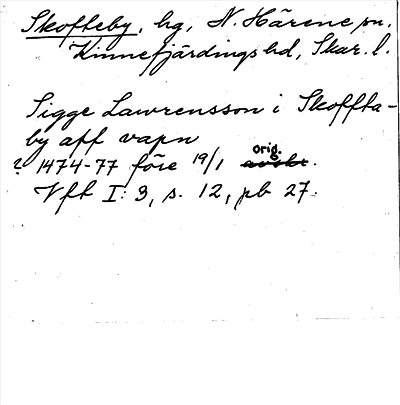 Skofteby, hg, N. Härene sn.
Kinnefjärdings hd, Skar. l.
Sigge Lawrensson i Skoffta-
by aff vapn
? 1474-77 före 19/1 orig. avskr.
Vft I: 3, s. 12, pb 27.